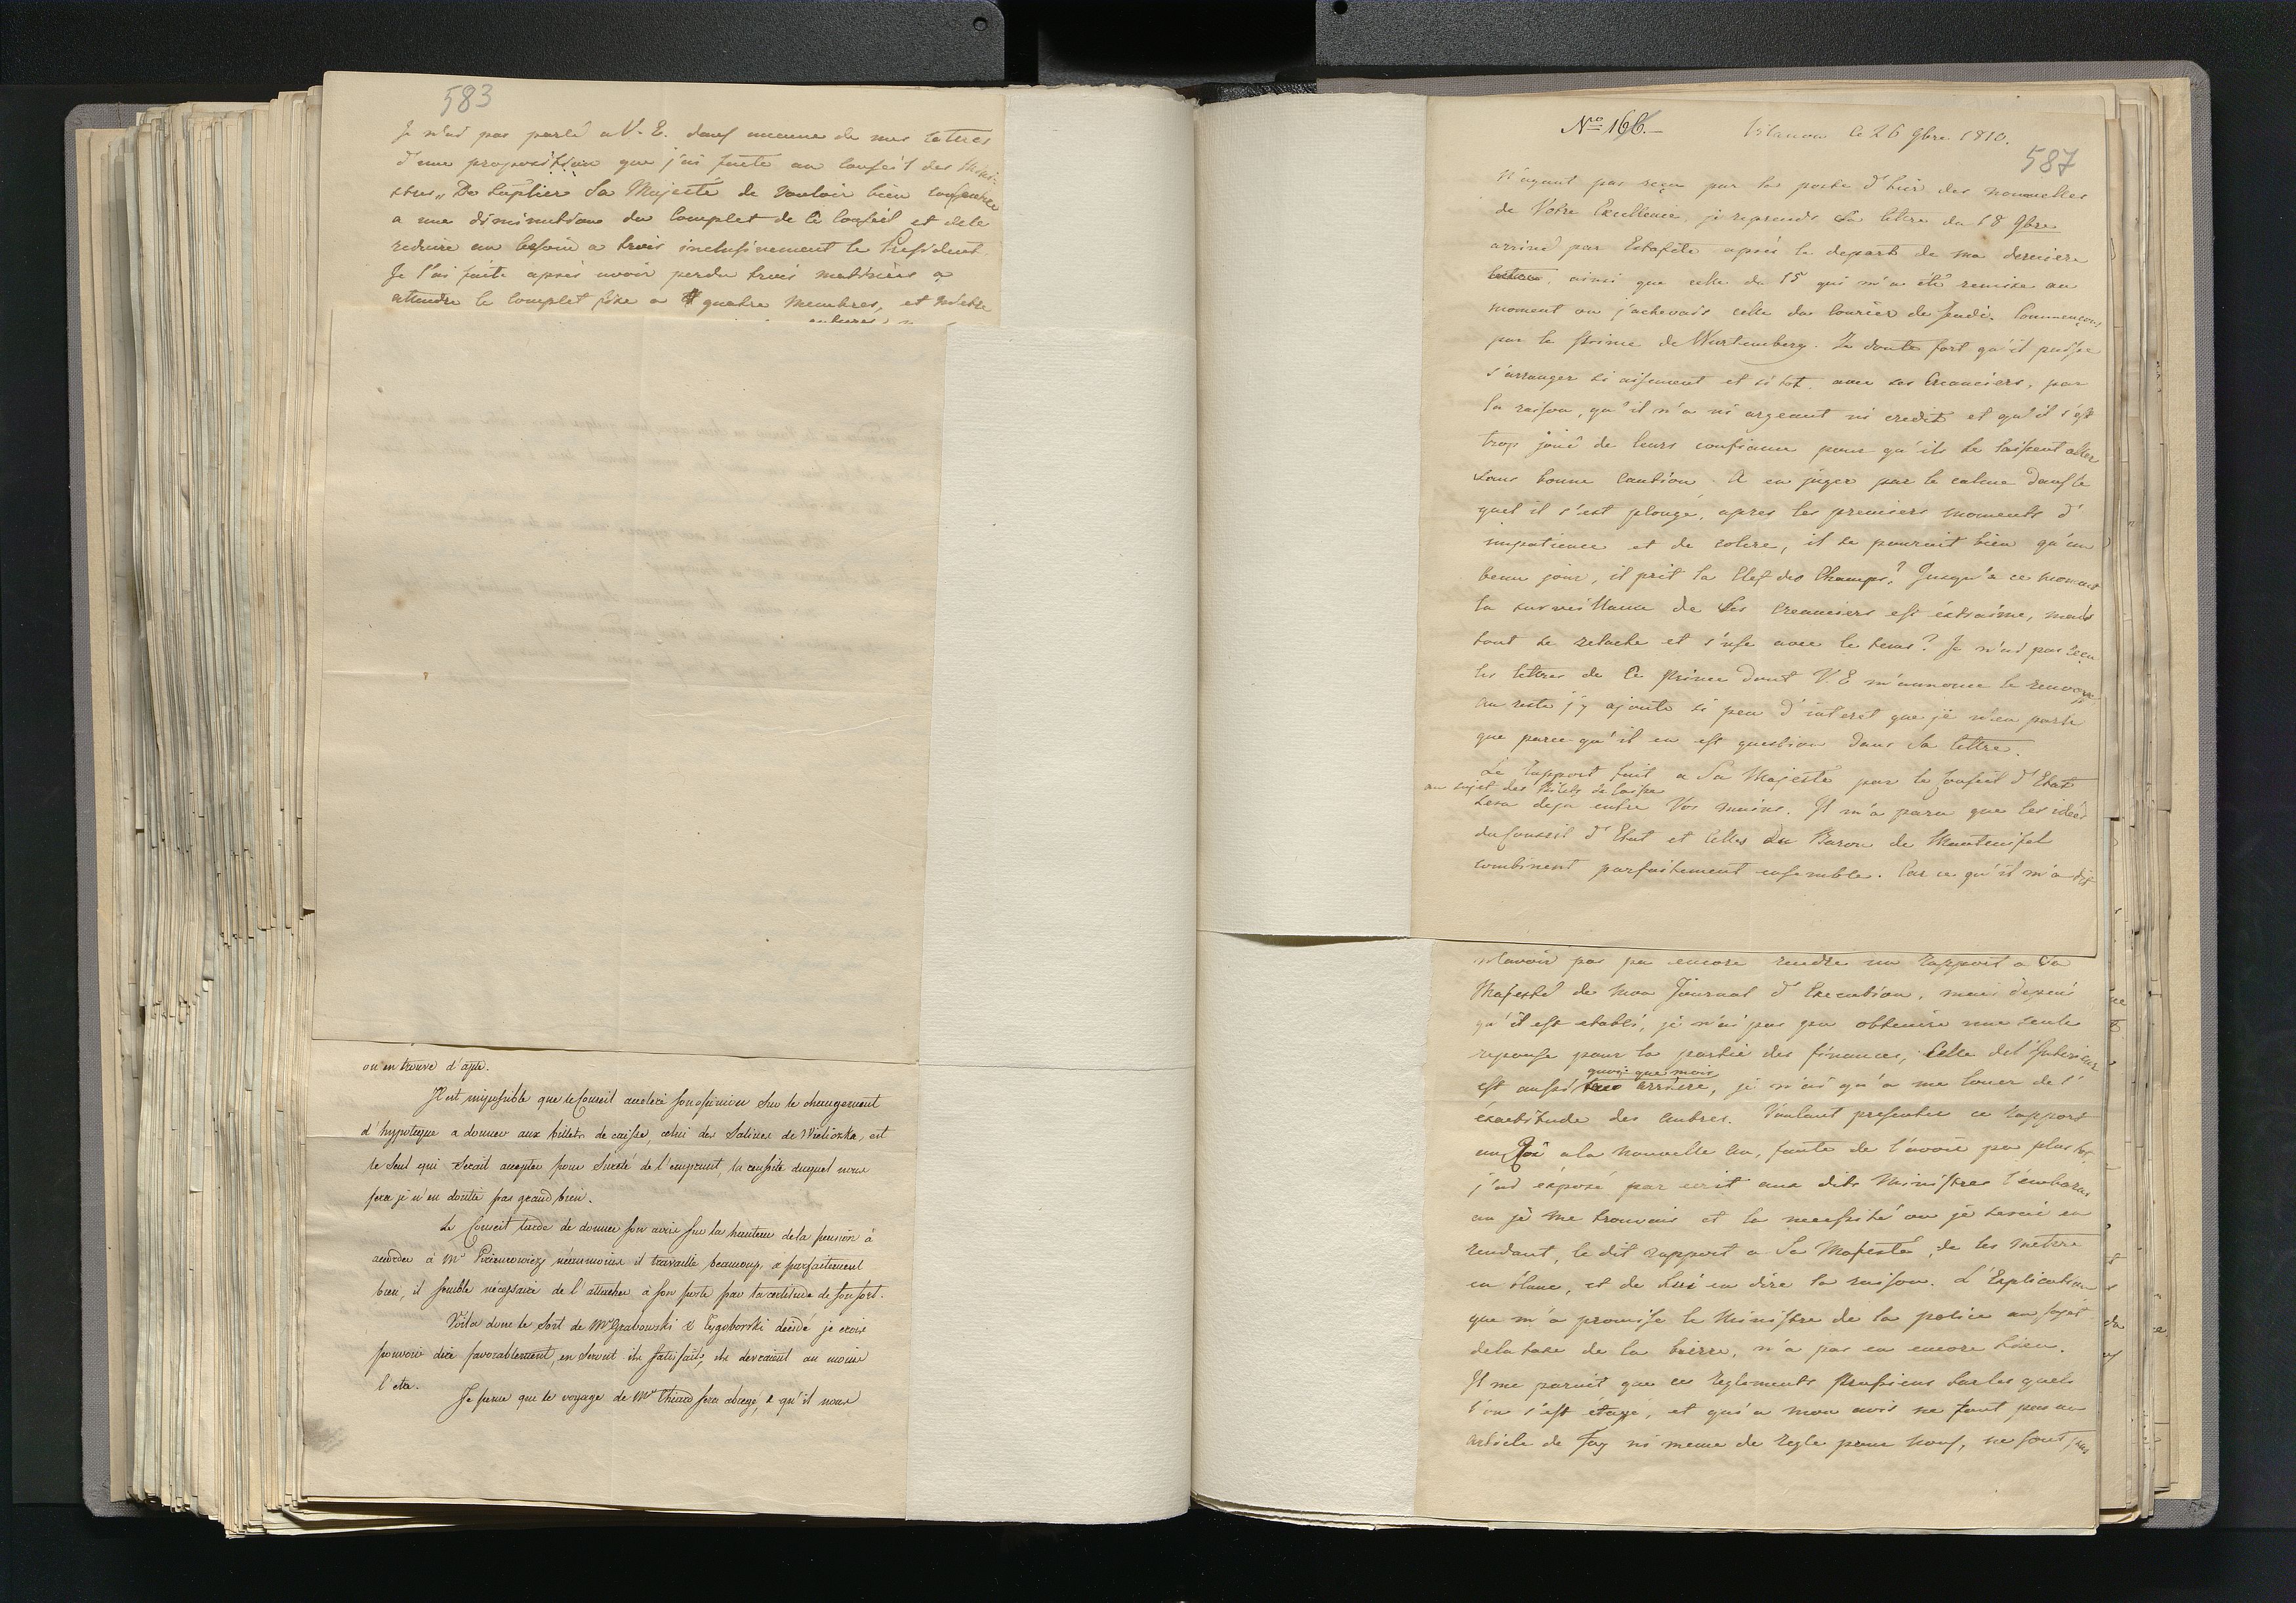 583
Je n'ai pas parlé a V. E. dans aucune de mes letres
d'une proposition que j'ai faite au Conseil des Mini-
stres „ De suplier Sa Majesté de vouloir bien consentir
a une diminution du Complet de ce Conseil et de le
reduire au besoin a trois inclusivement le President.
Je l'ai faite après avoir perdu trois matinées a
attendre le complet fixé a quatre membres, et
ou en trouve d'apte.
Il est impossible que le Conseil accelere son opinion sur le changement
d'hypoteque a donner aux billets de caisse, celui des Salines de Wieliczka, est
le seul qui serait accepté pour sureté de l'emprunt, la reussite duquel nous
fera je n'en doute pas grand bien.
Le Conseil tarde de donner son avis sur la hauteur de la pension à
accorder à Mr néanmoins il travaille beaucoup, & parfaitement
bien, il semble nécessaire de l'attacher à son poste par la certitude de son sort.
Voila donc le Sort de Mrs Grabowski & Tegoborski décidé je crois
pouvoir dire favorablement, en seront ils satisfaits, ils devraient au moins
l'etre.
Je pense que le voyage de Mr Thiard sera abregé, & qu'il nous
No 166.— Vilanow le 26 9bre 1810.
587
N'ayant pas reçu par la poste d'hier des nouvelles
de Votre Excellence, je reprends Sa lettre du 18 9bre
arrivé par Estafete après le depart de ma derniere
ainsi que celle du 15 qui m'a été remise au
moment ou j'achevais celle du Courier de Jeudi. Commençons
par le Prince de Wurtemberg. Je doute fort qu'il puisse
s'arranger si aisement et si tot avec ses Creanciers, par
la raison, qu'il n'a ni argeant ni credit et qu'il s'est
trop joué de leurs confiance pour qu'ils le laissent aller
sans bonne Caution. A en juger par le calme dans le
quel il s'est plongé, apres les premiers moments d'
impatience et de colere, il se pouroit bien qu'un
beau jour, il prit la Clef des Champs? Jusqu'a ce moment
la surveillance de Ses Creanciers est extraime, mais
tout se relache et s'use avec le tems? Je n'ai pas reçu
les lettres de Ce Prince dont V. E m'annonce le renvoye,
au reste j'y ajoute si peu d'interet que je n'en parle
que parce qu'il en est question dans Sa lettre.
Le Rapport fait a Sa Majesté par le Conseil d'Etat
au sujet des Billets de Caisse
sera deja entre Vos mains. Il m'a paru que les idées
du Conseil d'Etat et Celles du Baron de Manteuifel
combinent parfaitement ensemble. Car ce qu'il m'a dit
n'avoir pas pu encore rendre un Rapport a Sa
Majesté de mon Journal d'Execution, mais depuis
qu'il est etabli, je n'ai pas pu obtenir une seule
reponse pour la partie des finances, Celle de l'Interieur
quoi que moin
est aussi arriere, je n'ai qu'a me louer de l'
exactitude des autres. Voulant presenter ce Rapport
au Roi a la nouvelle An, faute de l'avoir pu plus tot,
j'ai exposé par ecrit aux dits Ministres l'embaras
ou je me trouvais et la necessité ou je serai en
rendant, le dit rapport a Sa Majesté, de les metre
en blanc, et de Lui en dire la raison. L'Explication
que m'a promise le Ministre de la police au sujet
de la taxe de la bierre, n'a pas eu encore lieu.
Il me parait que ces reglements Prussiens sur les quels
l'on s'est etayé, et qui a mon avis ne font pas un
article de foy ni meme de regle pour nous, ne sont pas